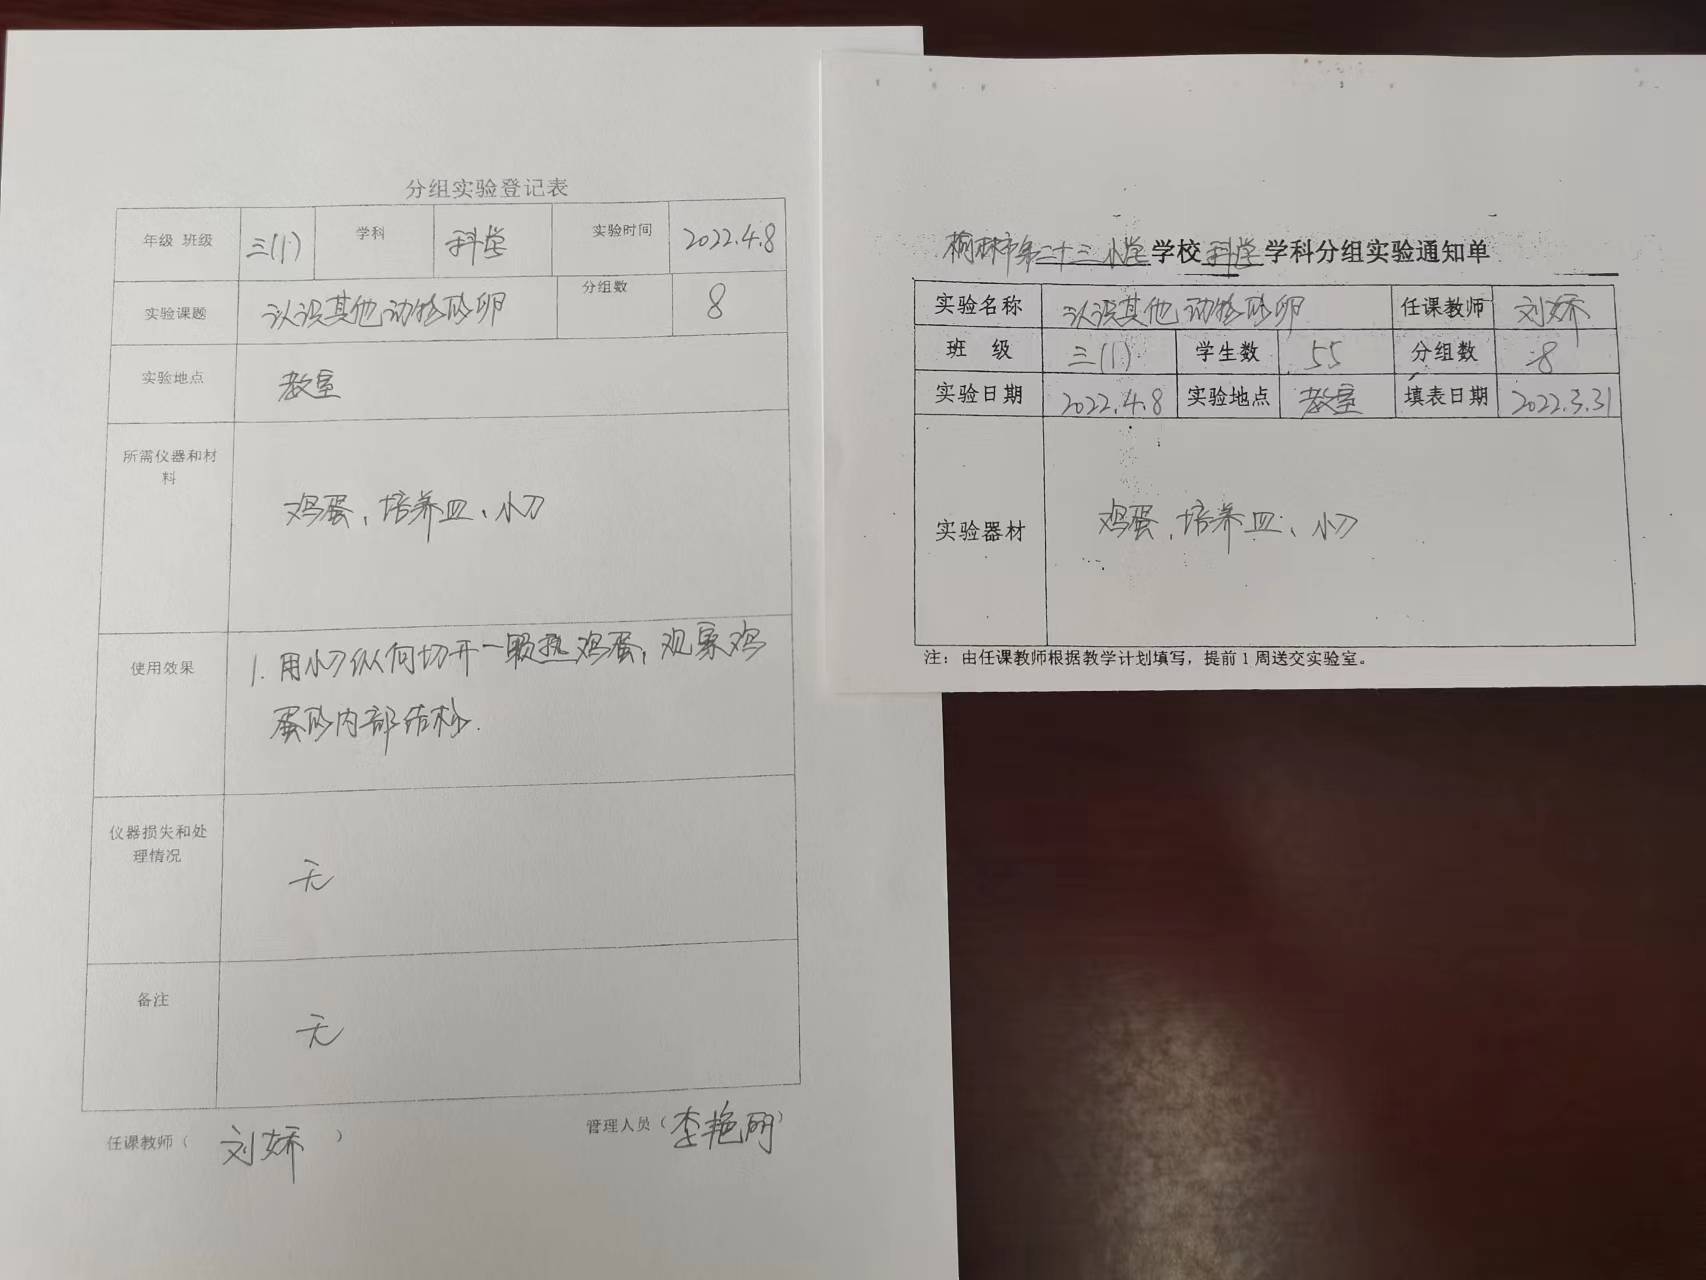 分组实验登记表
年级 班级 三(1) 学科 科学 实验时间 2022.4.8
实验课题 认识其他动物的卵 分组数 8
实验地点 教室
所需仪器和材
料
鸡蛋、培养皿、小刀
使用效果
1. 用小刀纵向切开一颗熟鸡蛋,观察鸡
蛋的内部结构.
仪器损失和处
理情况
无
备注
无
任课教师( 刘娇 ) 管理人员(李艳丽)
榆林市第二十三小学学校科学学科分组实验通知单
实验名称 认识其他动物的卵 任课教师 刘娇
班 级 三(1) 学生数 55 分组数 8
实验日期 2022.4.8 实验地点 教室 填表日期 2022.3.31
实验器材 鸡蛋、培养皿、小刀
注：由任课教师根据教学计划填写，提前1周送交实验室。